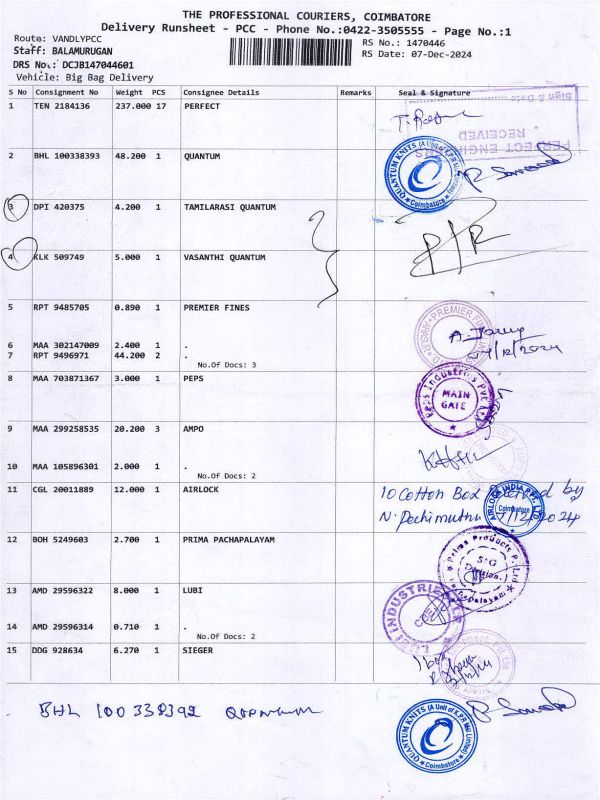 THE PROFESSIONAL COURIERS, COIMBATORE
Delivery Runsheet - PCC - Phone No.:0422-3505555 - Page No.:1
Route: VANDLYPCC
RS No.: 1470446
Staff: BALAMURUGAN
RS Date: 07-Dec-2024
DRS No.: DCJB147044601
Vehicle: Big Bag Delivery
S No Consignment No Weight PCS Consignee Details Remarks Seal & Signature
1 TEN 2184136 237.000 17 PERFECT
Sign & Date
RECEIVED
2 BHL 100338393 48.200 1 QUANTUM
QUANTUM KNITS (A Unit of K.P.R Mill Limited) Coimbatore
3 DPI 420375 4.200 1 TAMILARASI QUANTUM
4 KLK 509749 5.000 1 VASANTHI QUANTUM
5 RPT 9485705 0.890 1 PREMIER FINES
6 MAA 302147009 2.400 1 .
7 RPT 9496971 44.200 2 .
No.Of Docs: 3
8 MAA 703871367 3.000 1 PEPS
Peps Industries Pvt Ltd
MAIN
GATE
9 MAA 299258535 20.200 3 AMPO
10 MAA 105896301 2.000 1 .
No.Of Docs: 2
11 CGL 20011889 12.000 1 AIRLOCK
10 Cotton Box Received by
N. Pechimuthu 7/12/2024
AIRLOCK INDIA PVT. LTD
Coimbatore
12 BOH 5249603 2.700 1 PRIMA PACHAPALAYAM
Prima Products P. Ltd
Division
13 AMD 29596322 8.000 1 LUBI
LUBI INDUSTRIES
14 AMD 29596314 0.710 1 .
No.Of Docs: 2
15 DDG 928634 6.270 1 SIEGER
1 box
BHL 100338392 Quantum
QUANTUM KNITS (A Unit of K.P.R Mill Limited) Coimbatore